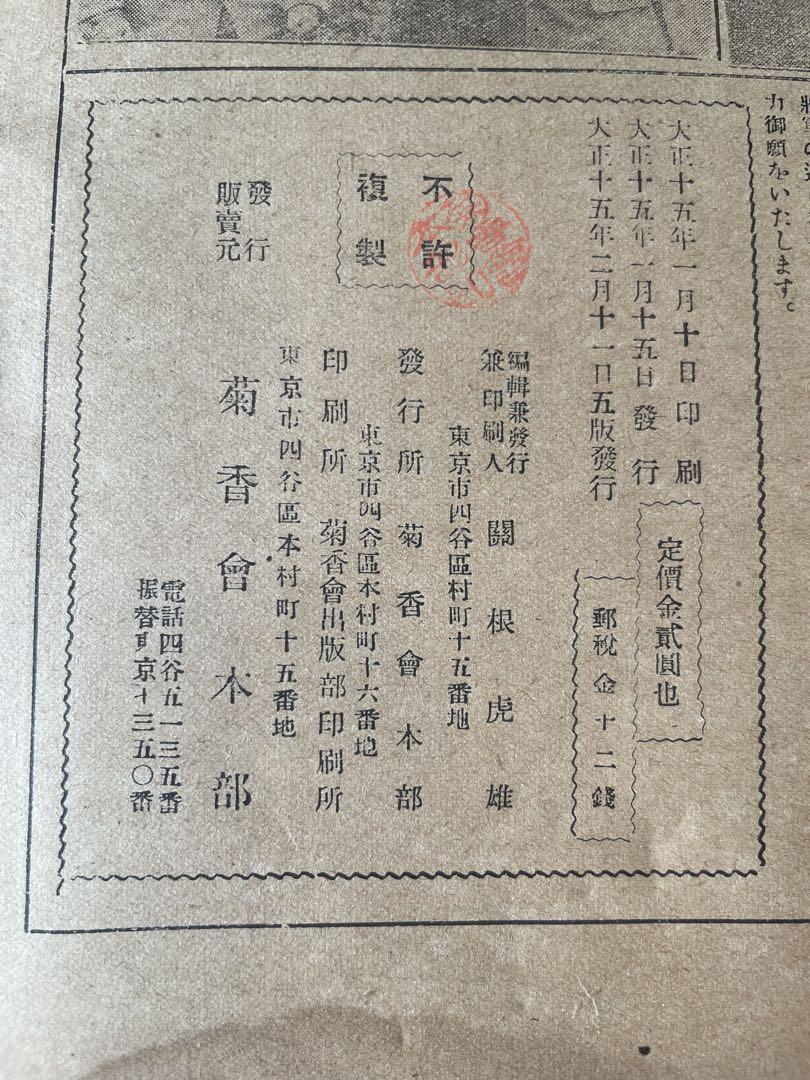 力御願をいたします。
大正十五年一月十日印刷
大正十五年一月十五日發行
大正十五年二月十一日五版發行
定價金貳圓也
郵稅金十二錢
不許
複製
編輯兼發行
兼印刷人
關根虎雄
東京市四谷區村町十五番地
發行所 菊香會本部
東京市四谷區本村町十六番地
印刷所 菊香會出版部印刷所
東京市四谷區本村町十五番地
發行
販賣元
菊香會本部
電話四谷五一三五番
振替東京十三五〇番